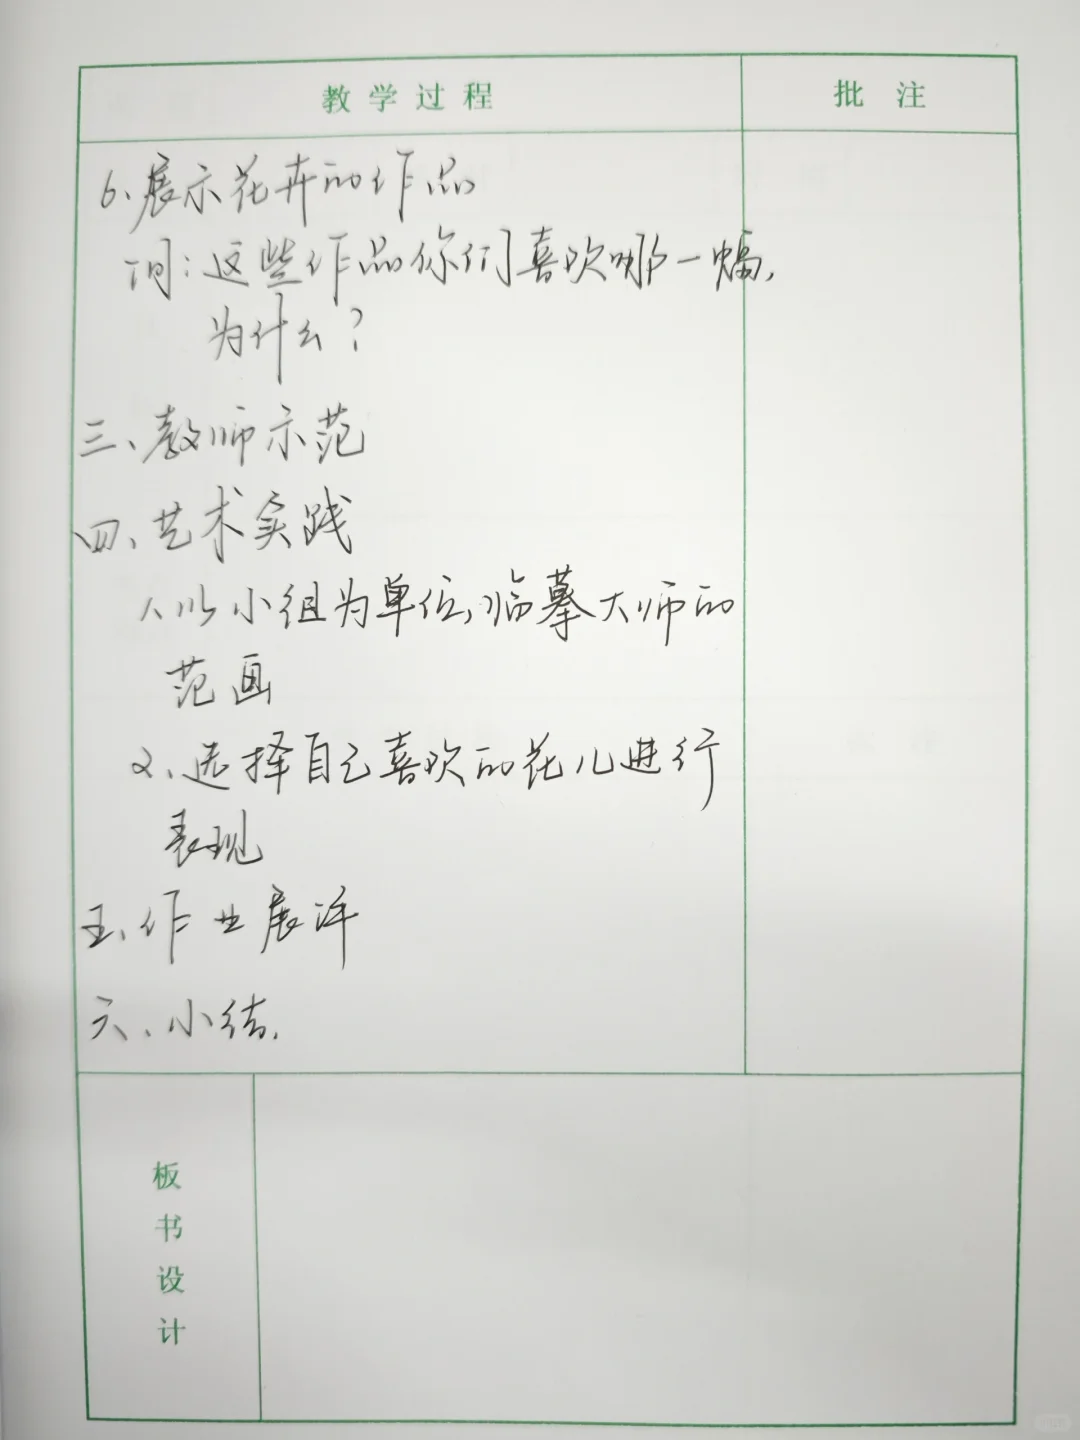 教学过程
批注
6、展示花卉的作品
问：这些作品你们喜欢哪一幅，
为什么？
三、教师示范
四、艺术实践
1、以小组为单位，临摹大师的
范画
2、选择自己喜欢的花儿进行
表现
五、作业展评
六、小结.
板
书
设
计